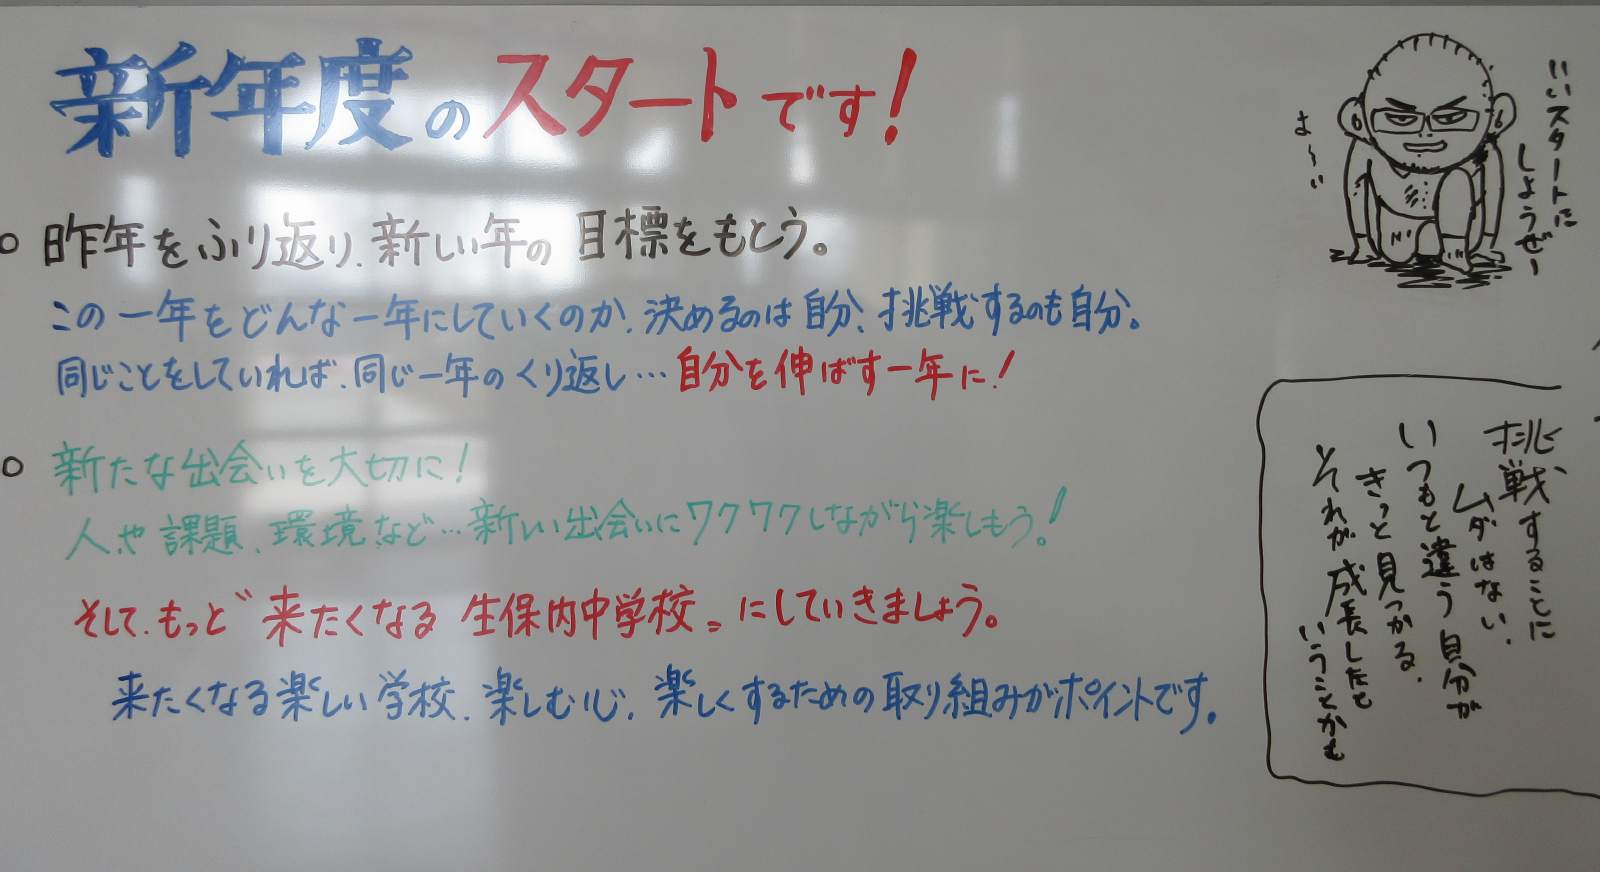 新年度のスタートです!
○ 昨年をふり返り、新しい年の目標をもとう。
この一年をどんな一年にしていくのか、決めるのは自分、挑戦するのも自分。
同じことをしていれば、同じ一年のくり返し…自分を伸ばす一年に!
○ 新たな出会いを大切に!
人や課題、環境など…新しい出会いにワクワクしながら楽しもう!
そして、もっと〝来たくなる 生保内中学校〟にしていきましょう。
来たくなる楽しい学校、楽しむ心、楽しくするための取り組みがポイントです。
いいスタートに
しようぜー
よ〜い
挑戦することに
ムダはない、
いつもと違う自分が
きっと見つかる、
それが成長したと
いうことかも